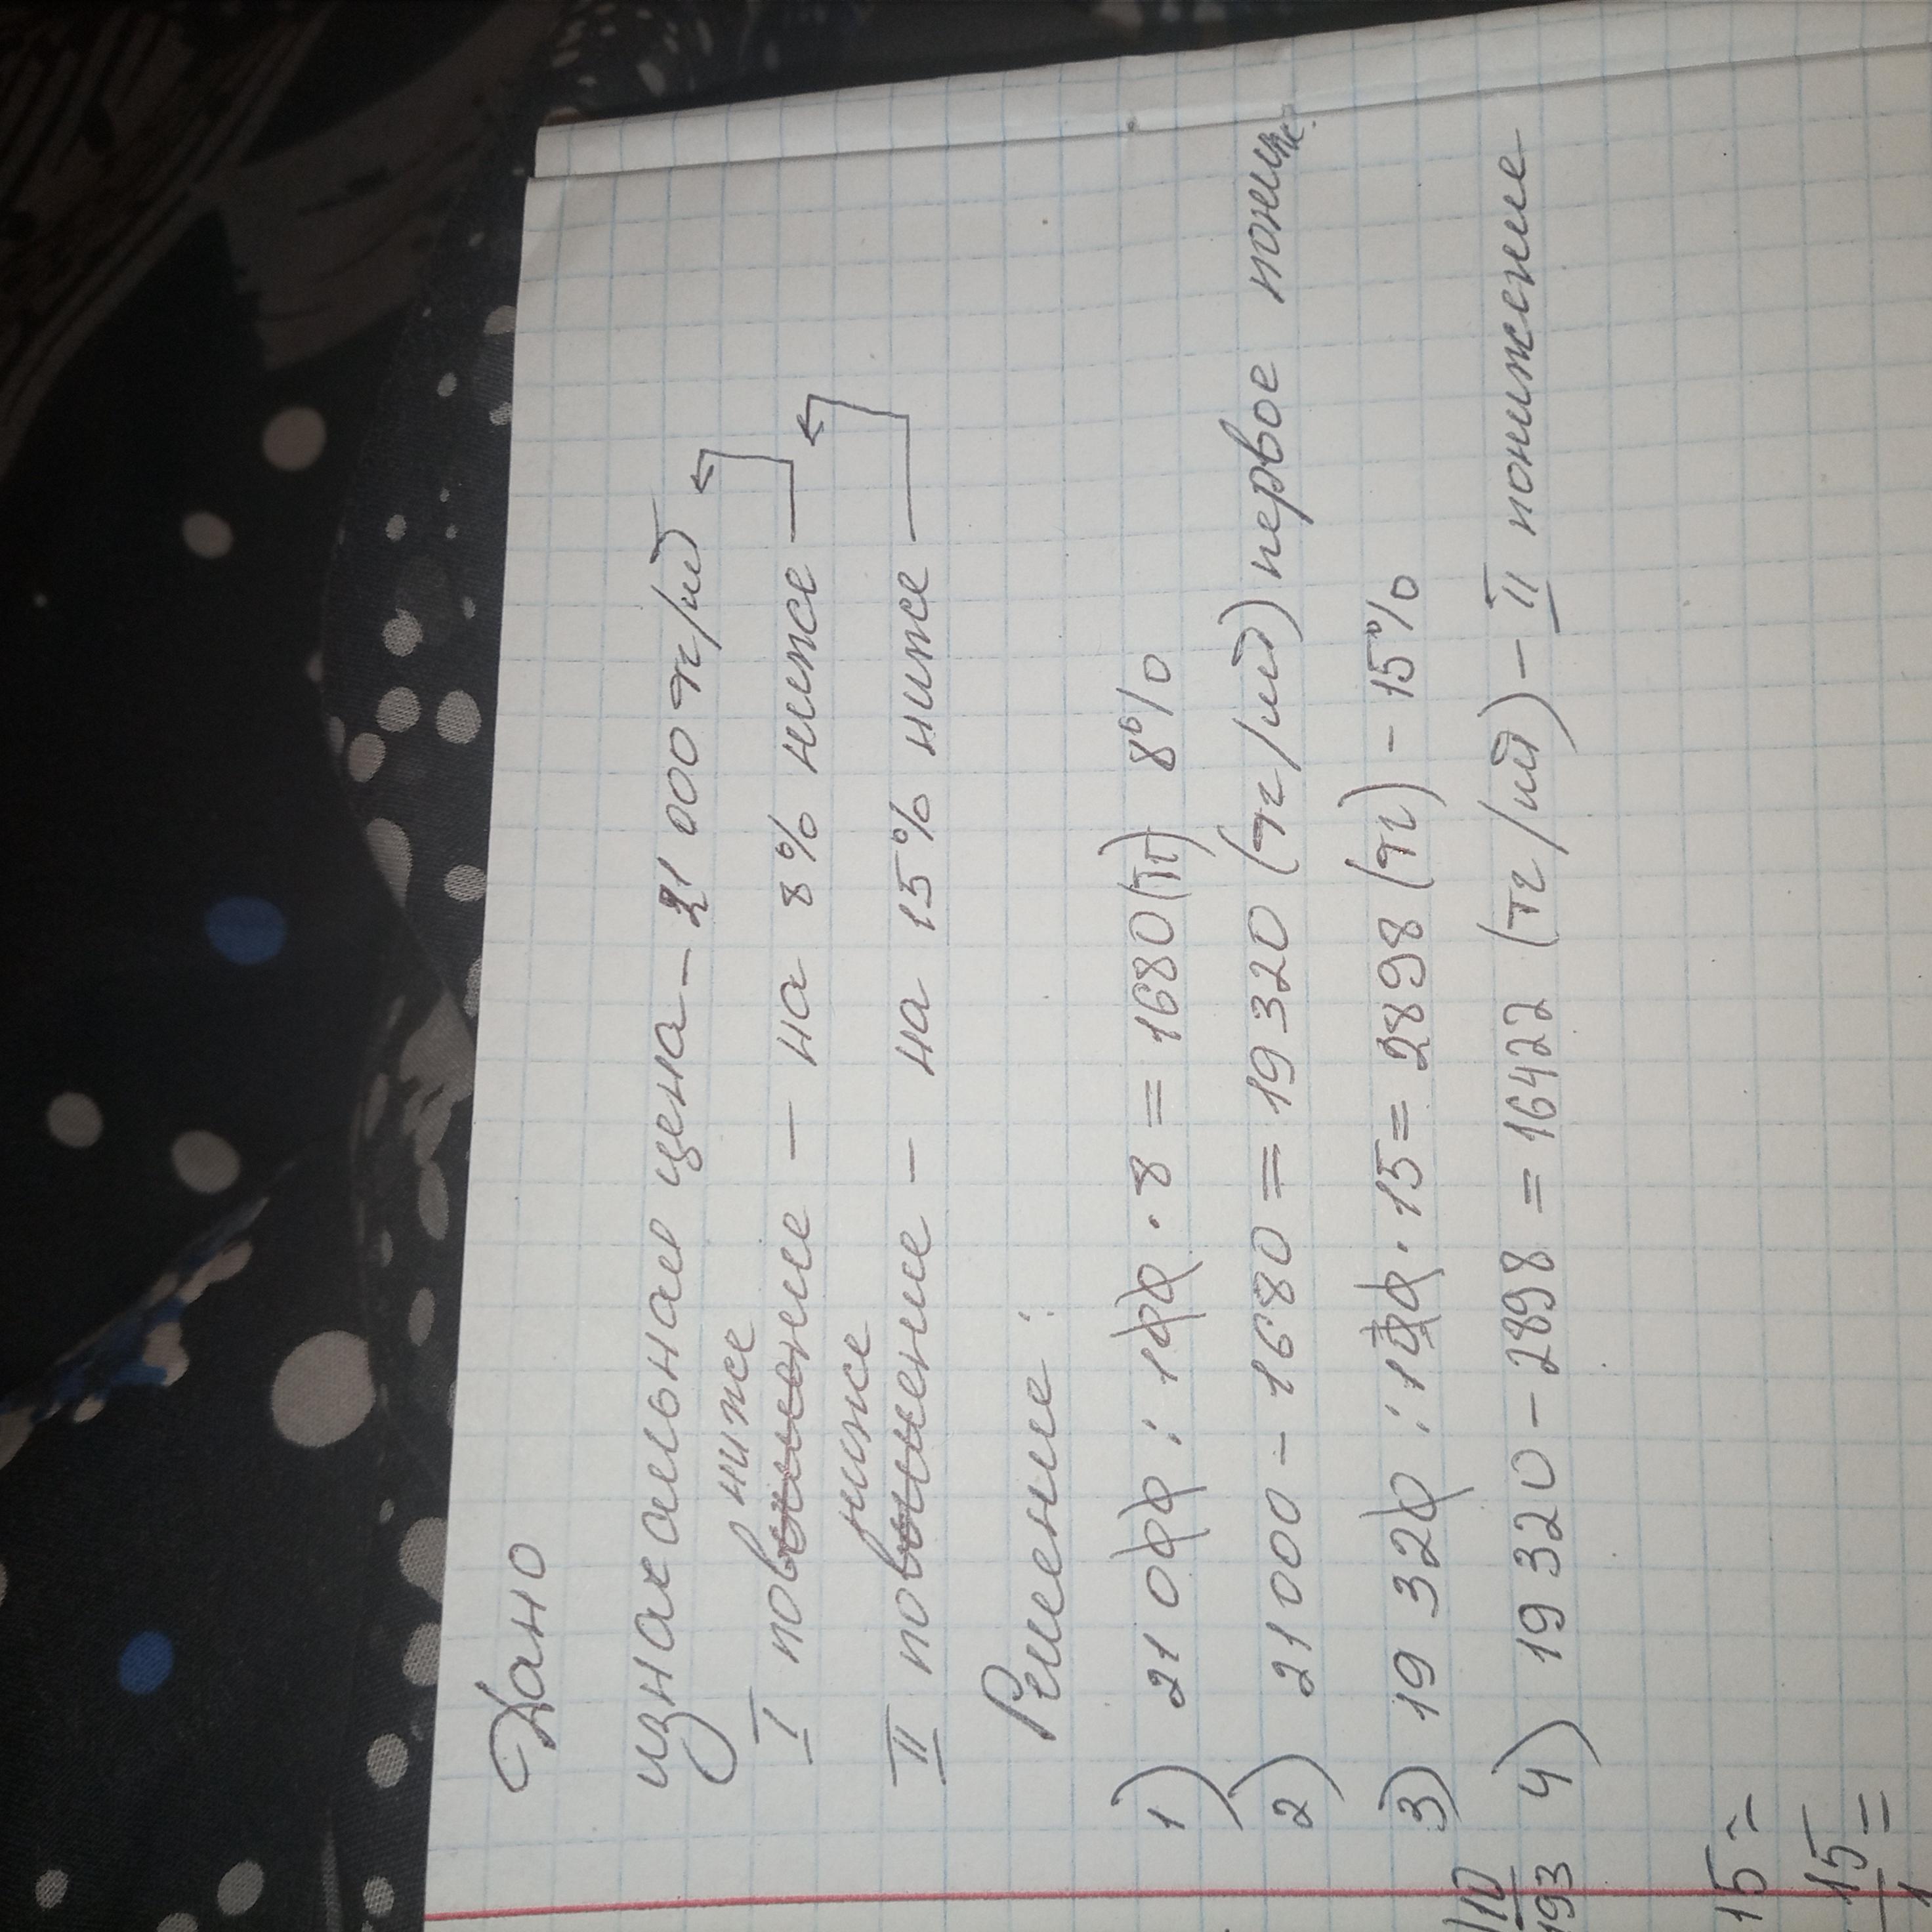 Дано
изначальная цена - 21 000 тг/ид
ниже
I повышение - на 8% ниже
ниже
II повышение - на 15% ниже
Решение:
1) 21 000 : 100 · 8 = 1680 (тг) 8%
2) 21 000 - 1680 = 19 320 (тг/ид) первое пониж.
3) 19 320 : 100 · 15 = 2898 (тг) - 15%
4) 19 320 - 2898 = 16422 (тг/ид) - II понижение
10
193
15 =
15 =